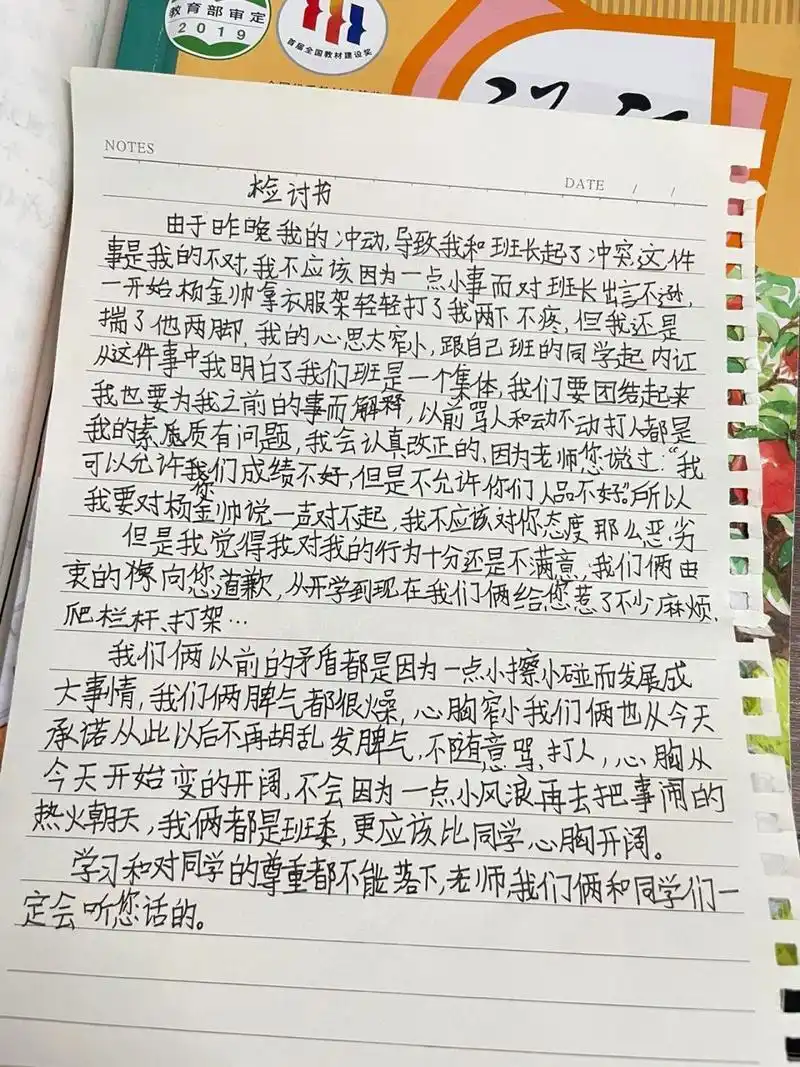 教育部审定
2019
首届全国教材建设奖
NOTES
DATE / /
检讨书
由于昨晚我的冲动,导致我和班长起了冲突,这件
事是我的不对,我不应该因为一点小事而对班长出言不逊,
一开始杨金帅拿衣服架轻轻打了我两下不疼,但我还是
揣了他两脚,我的心思太窄小,跟自己班的同学起内讧
从这件事中我明白了我们班是一个集体,我们要团结起来
我也要为我之前的事而解释,以前骂人和动不动打人都是
我的素质有问题,我会认真改正的,因为老师您说过:“我
可以允许我们成绩不好,但是不允许你们人品不好”所以
我要对杨金帅说一声对不起,我不应该对你态度那么恶劣
但是我觉得我对我的行为十分还是不满意,我们俩由
衷的像向您道歉,从开学到现在我们俩给您惹了不少麻烦,
爬栏杆、打架…
我们俩以前的矛盾都是因为一点小擦小碰而发展成
大事情,我们俩脾气都很燥,心胸窄小我们俩也从今天
承诺从此以后不再胡乱发脾气,不随意骂、打人,心胸从
今天开始变的开阔,不会因为一点小风浪再去把事闹的
热火朝天,我俩都是班委,更应该比同学心胸开阔。
学习和对同学的尊重都不能落下,老师,我们俩和同学们一
定会听您话的。